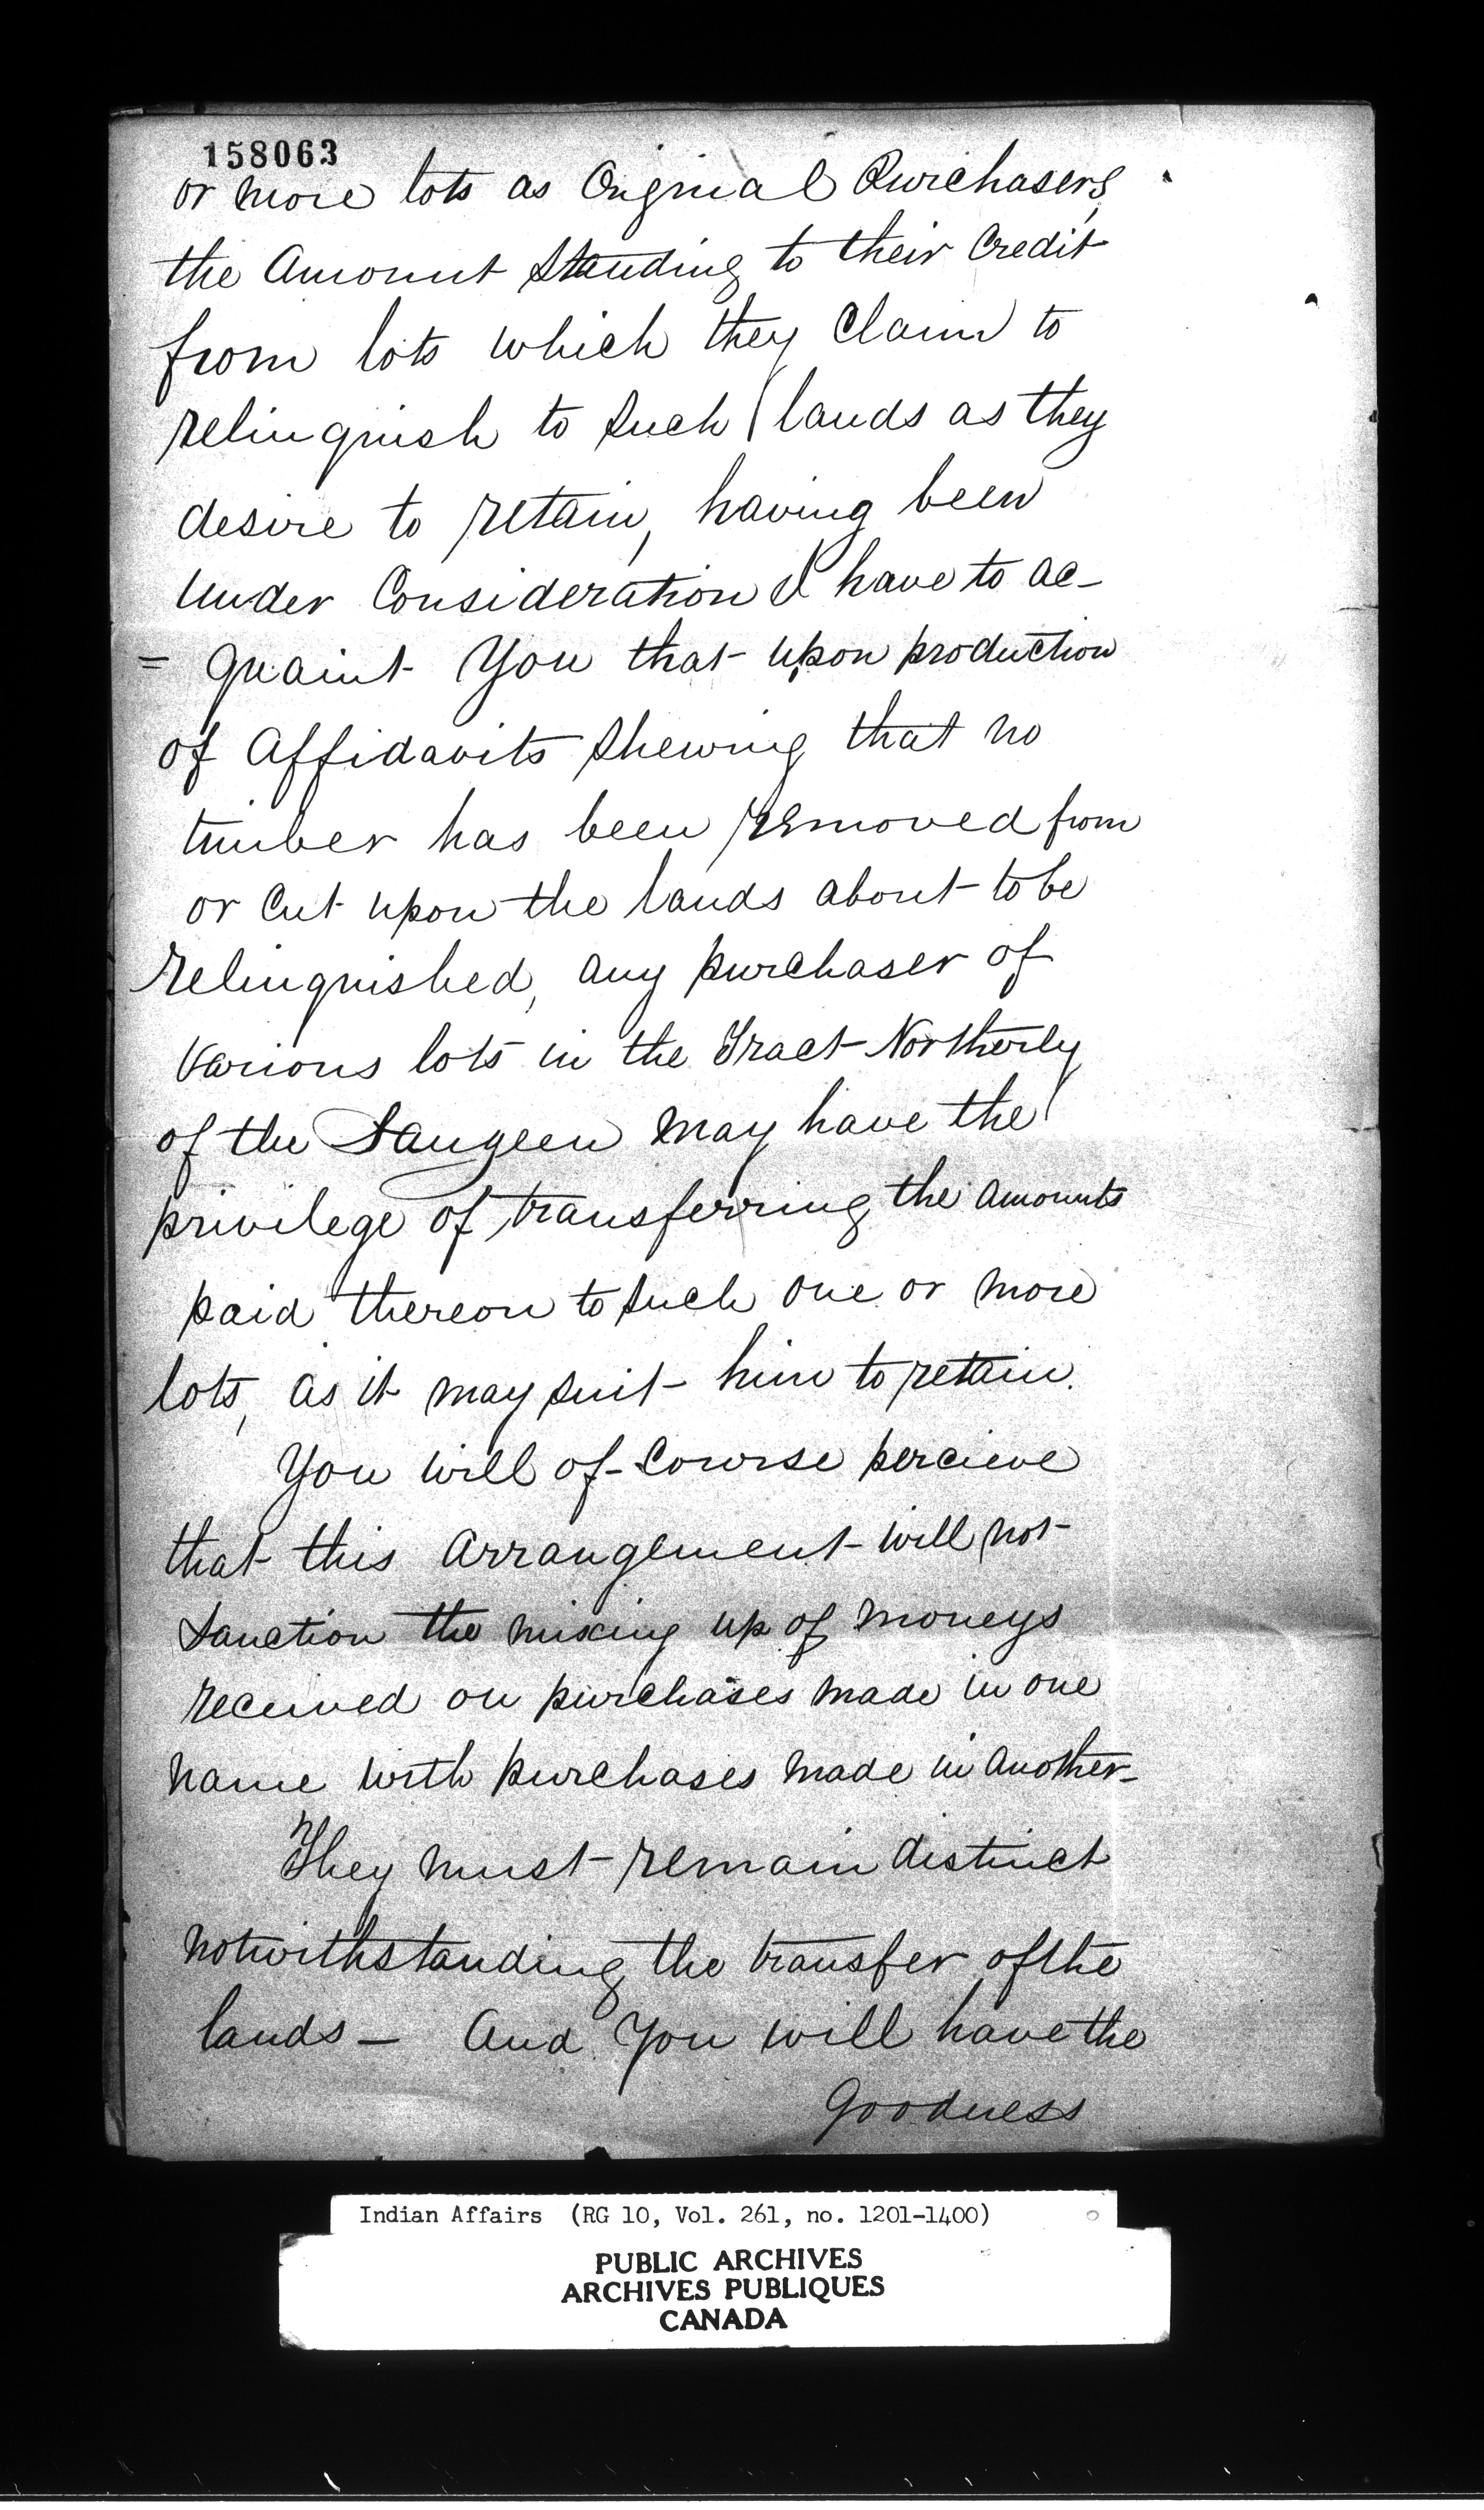 158063
or more lots as Original Purchasers,
the Amount Standing to their Credit
from lots which they Claim to
relinquish to Such lands as they
desire to retain, having been
Under Consideration I have to ac-
= quaint You that upon production
of Affidavits Shewing that no
timber has been removed from
or Cut upon the lands about to be
relinquished, any purchaser of
various lots in the Tract Northerly
of the Saugeen may have the
privilege of transferring the amounts
paid thereon to Such one or more
lots, as it may Suit him to retain.
You will of-Course percieve
that this Arrangement will not
Sanction the mixing up of moneys
received on purchases made in one
name with purchases made in Another-
They must remain distinct
notwithstanding the transfer of the
lands — And You will have the
Goodness
Indian Affairs (RG 10, Vol. 261, no. 1201-1400)
PUBLIC ARCHIVES
ARCHIVES PUBLIQUES
CANADA